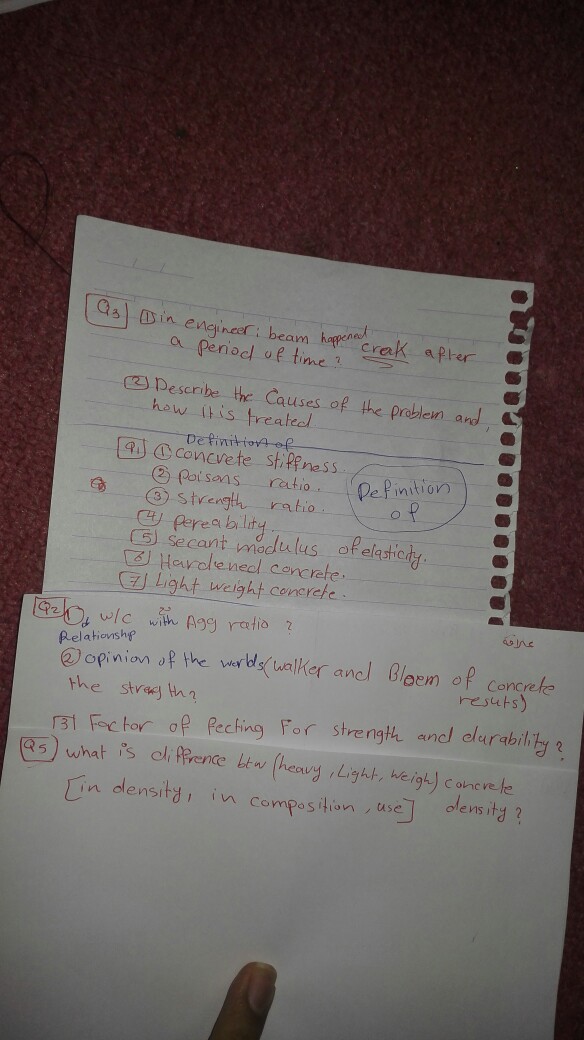 Q3 1 in engineer: beam happened creak after
a period of time?
2 Describe the Causes of the problem and,
how it is treated
Definition of
Q1 1 concrete stiffness.
2 poisons ratio.
3 strength ratio.
Definition
of
4 pereability
5 secant modulus of elasticity.
6 Hardiened concrete.
7 Light weight concrete.
Q2 1 w/c with Agg ratio?
Relationship
2 opinion of the worlds (walker and Bloem of concrete
resuts)
the stregth?
3 Factor of fecting For strength and durability?
Q5 what is diffrence btw (heavy, Light, weigh) concrete
[in density, in composition, use] density?